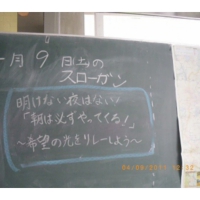 月9日(土)の
スローガン
明けない夜はない
「朝は必ずやってくる!」
~希望の光をリレーしよう~